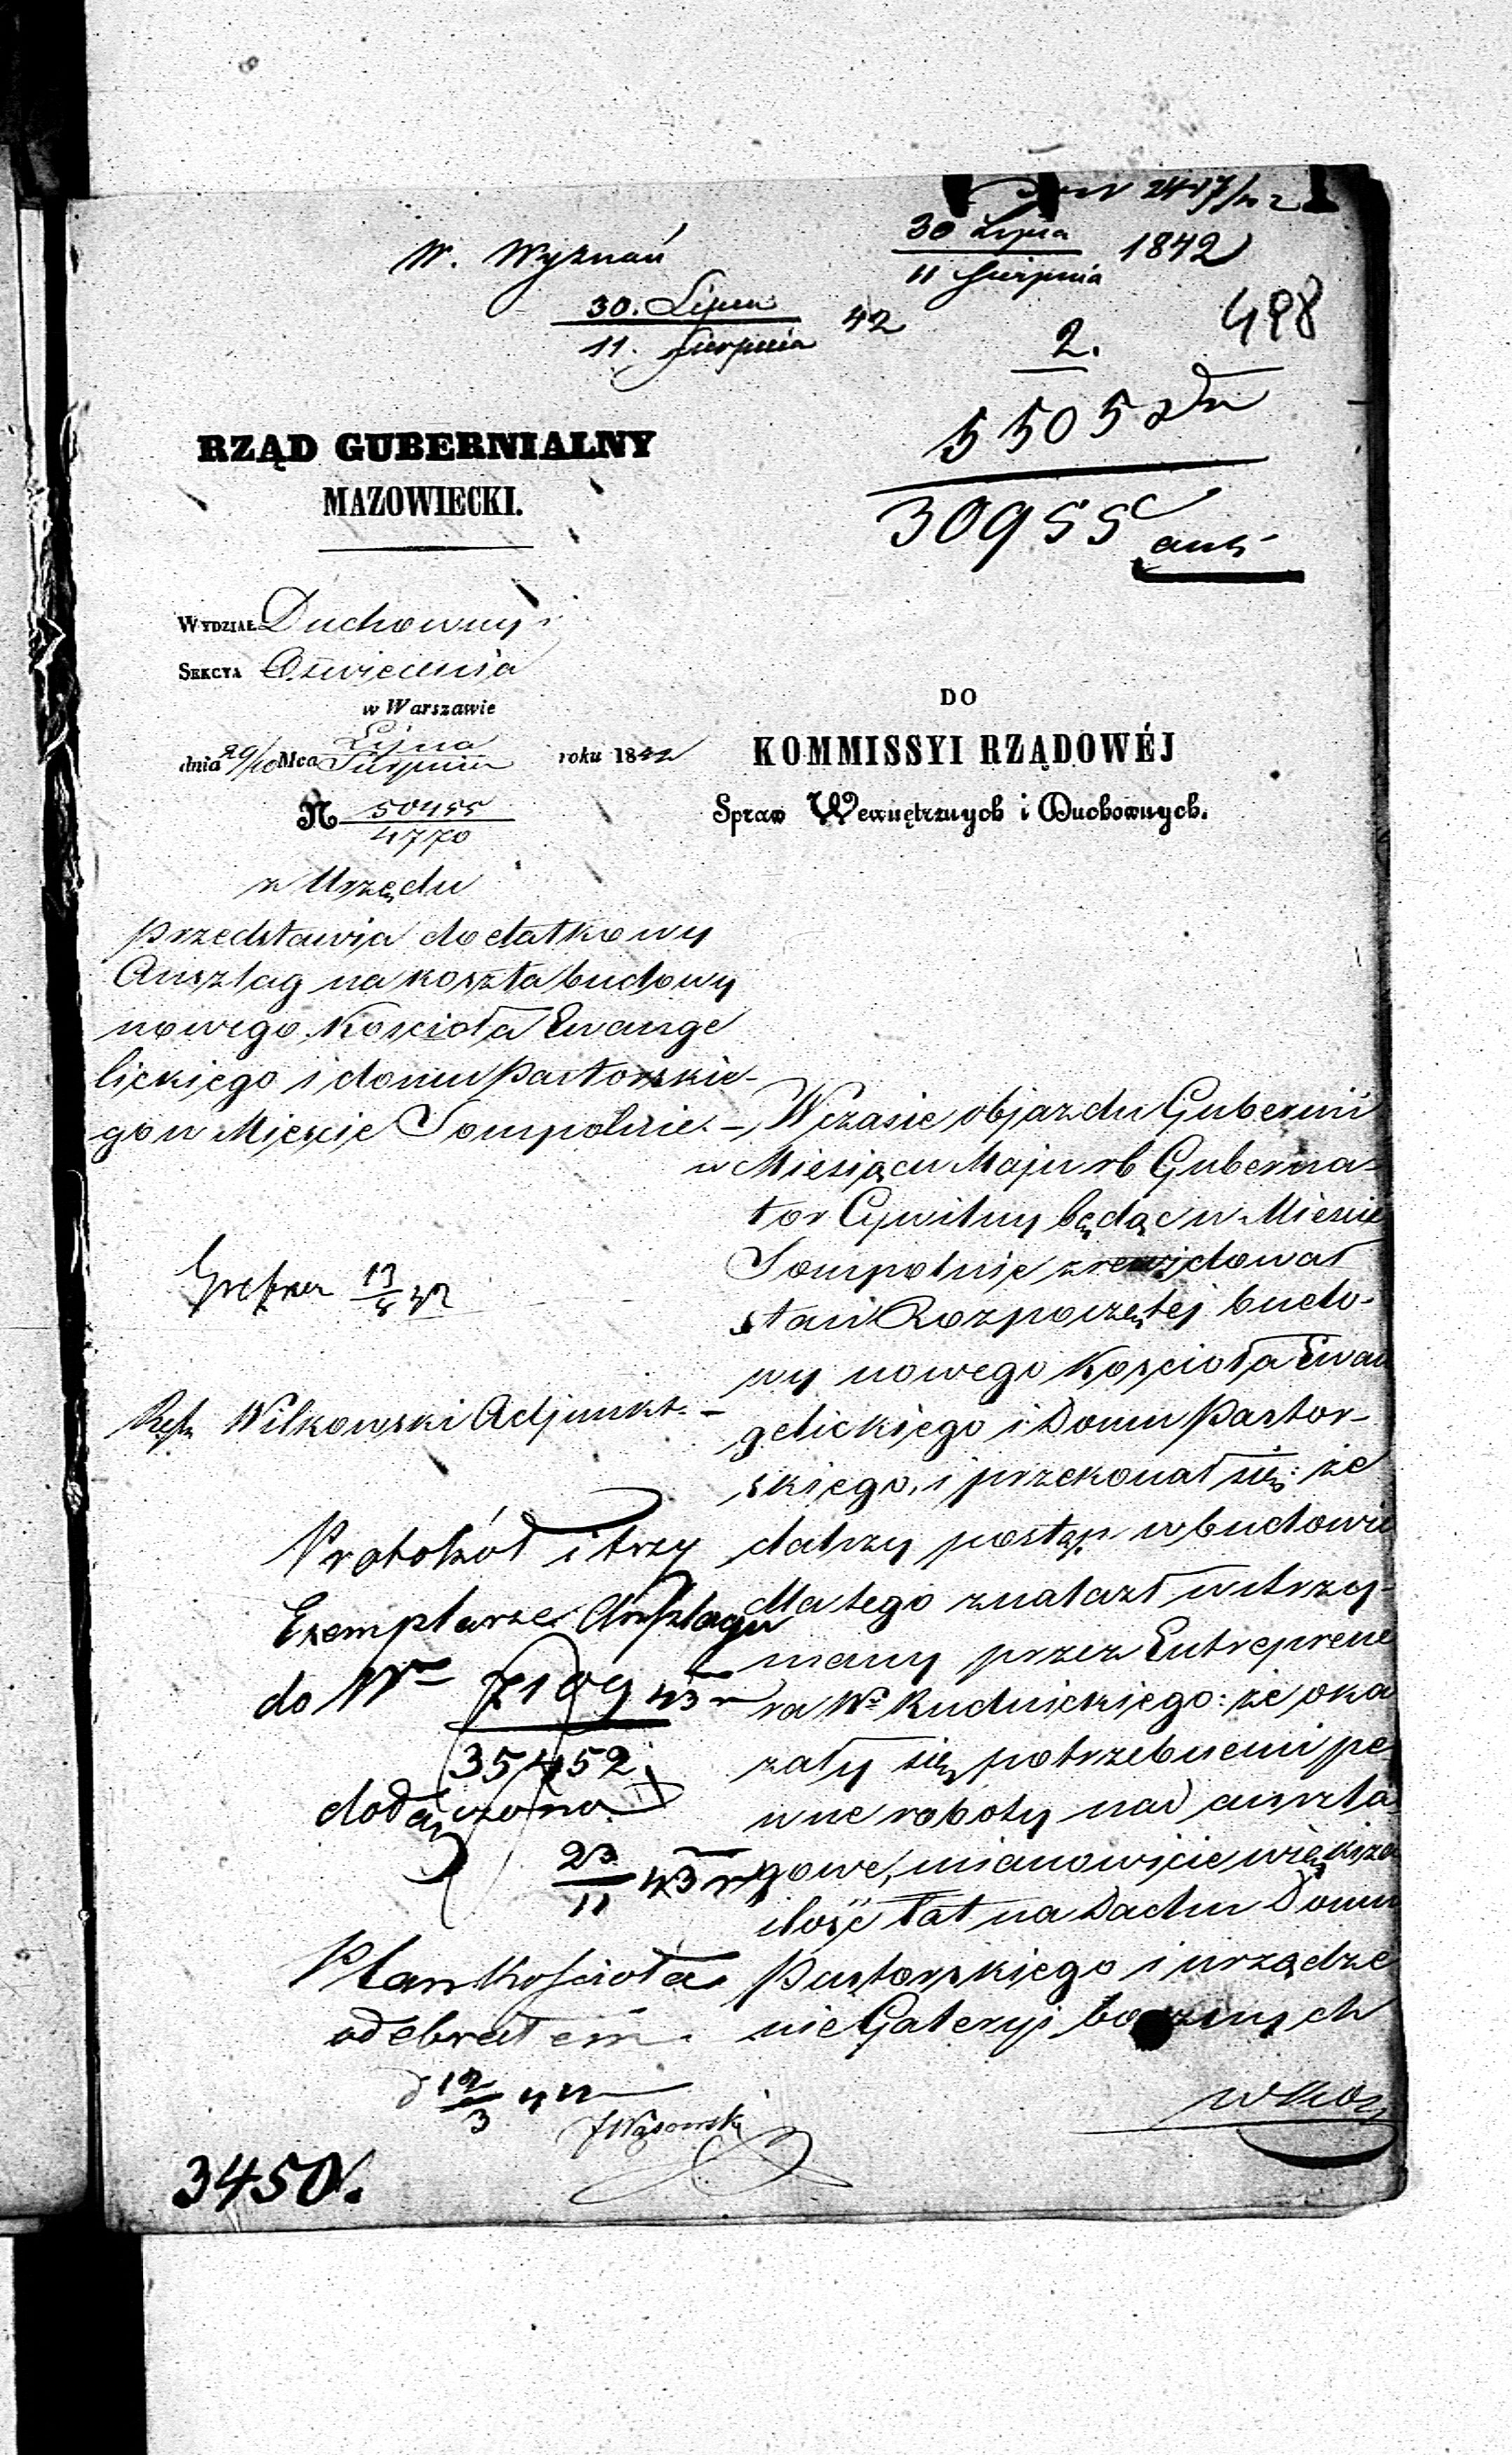 W. Wyznań
30. Lipca
11. Sierpnia 42
30 Lipca
11 Sierpnia 1842
498
2.
5505
30955
RZĄD GUBERNIALNY
MAZOWIECKI.
WYDZIAŁ Duchowny
SEKCYA Oświecenia
w Warszawie
dnia 29/10 Mca Lipca Sierpnia roku 1842
N 50455
4770
z Urzędu
przedstawia dodatkowy
Anszlag na koszta budowy
nowego Kościoła Ewange
lickiego i domu Pastorskie-
go w Mieście Sompolnie. -
DO
KOMMISSYI RZĄDOWÉJ
Spraw Wewnętrznych i Duchownych.
W czasie objazdu Gubernii
w Miesiącu Maju rb Guberna-
tor Cywilny będąc w Mieście
Sompolnie zrewidował
stan Rozpoczętej budo-
wy nowego Kościoła Ewan
gelickiego i Domu Pastor-
skiego, i przekonał się: że
dalszy postęp w budowie
dla tego znalazł wstrzy-
many przez Entreprene
ra Wo Rudnickiego: że oka
zały się potrzebnemi pe
wne roboty nad anszla
gowe, mianowicie większa
ilość łat na Dachu Domu
Pastorskiego i urządze
nie Galeryi bocznych
w Koś
13
8 42
Wilkowski Adjunkt. -
Protokół i trzy
Exemplarze Anszlagu
do Nr 7109 43 r
35452
dołączono
23
11 43 r
Plan Kościoła
odebrałem.
d 12
3 42
JWąsowski
3450.